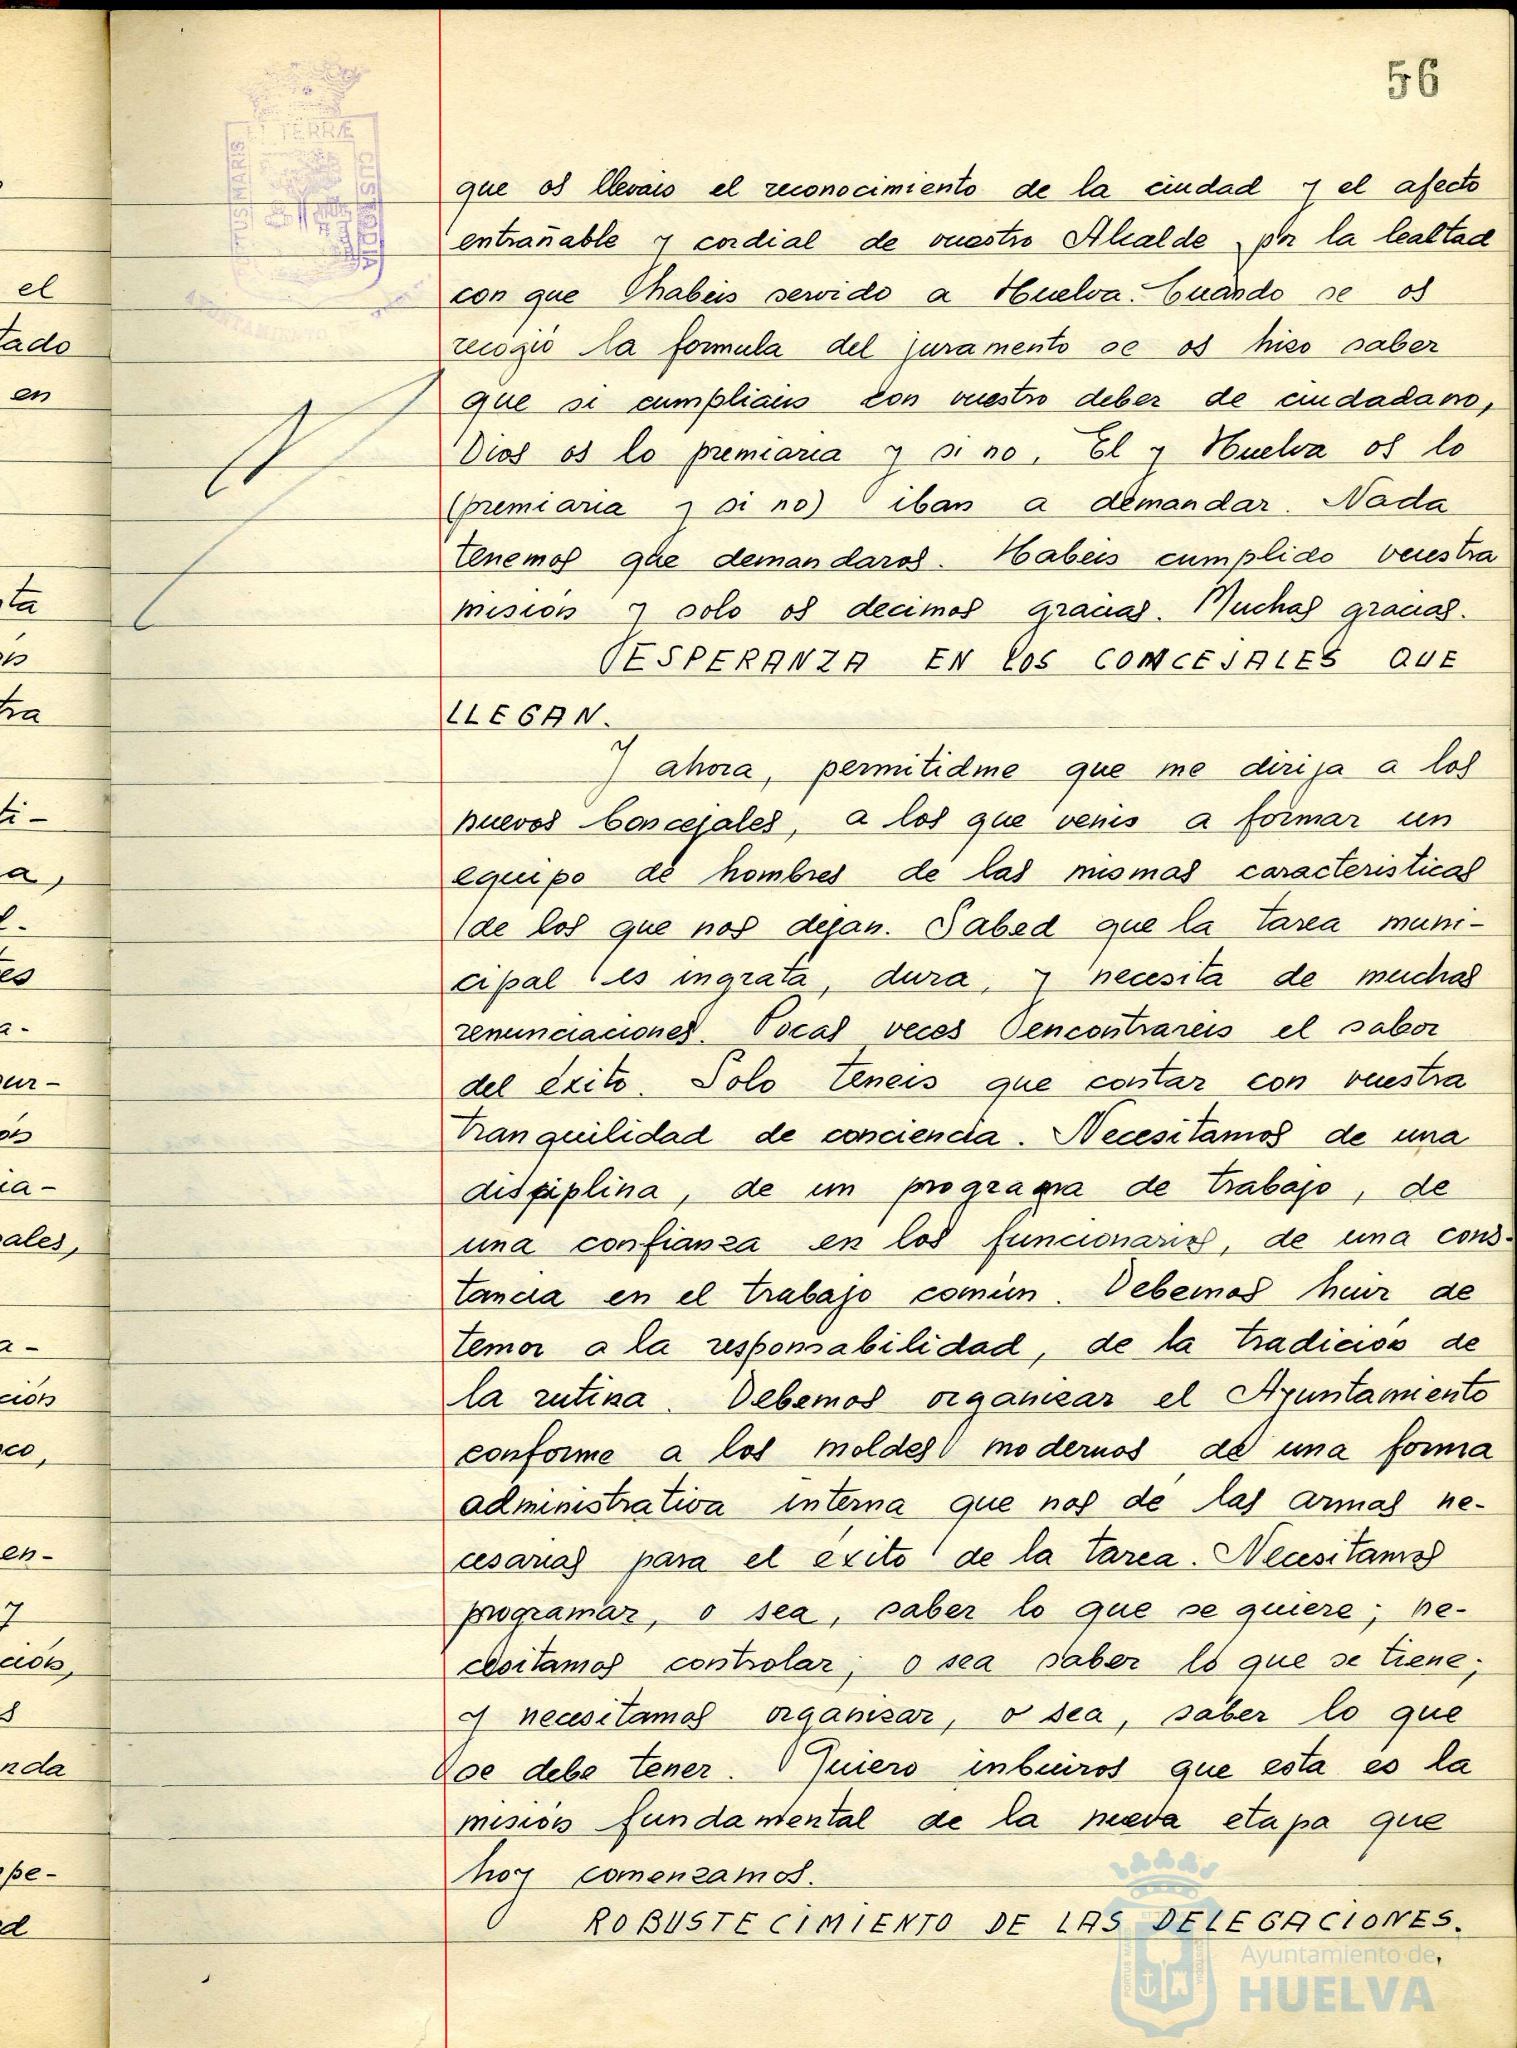 56
PORTUS MARIS
ET TERRÆ
CUSTODIA
que os llevais el reconocimiento de la ciudad y el afecto
entrañable y cordial de vuestro Alcalde por la lealtad
con que habeis servido a Huelva. Cuando se os
recogió la formula del juramento se os hiso saber
que si cumpliais con vuestro deber de ciudadano,
Dios os lo premiaria y si no, El y Huelva os lo
(premiaria y si no) iban a demandar. Nada
tenemos que demandaros. Habeis cumplido vuestra
misión y solo os decimos gracias. Muchas gracias.
ESPERANZA EN LOS CONCEJALES QUE
LLEGAN.
Y ahora, permitidme que me dirija a los
nuevos Concejales, a los que venis a formar un
equipo de hombres de las mismas caracteristicas
de los que nos dejan. Sabed que la tarea muni-
cipal es ingrata, dura, y necesita de muchas
renunciaciones. Pocas veces encontrareis el sabor
del éxito. Solo teneis que contar con vuestra
tranquilidad de conciencia. Necesitamos de una
disciplina, de un programa de trabajo, de
una confianza en los funcionarios, de una cons-
tancia en el trabajo común. Debemos huir de
temor a la responsabilidad, de la tradición de
la rutina. Debemos organizar el Ayuntamiento
conforme a los moldes modernos de una forma
administrativa interna que nos dé las armas ne-
cesarias para el éxito de la tarea. Necesitamos
programar, o sea, saber lo que se quiere; ne-
cesitamos controlar, o sea saber lo que se tiene;
y necesitamos organizar, o sea, saber lo que
se debe tener. Quiero inbuiros que esta es la
misión fundamental de la nueva etapa que
hoy comenzamos.
ROBUSTECIMIENTO DE LAS DELEGACIONES.
Ayuntamiento de
HUELVA
el
tado
en
ta
ón
tra
ti-
a,
l.
es
a-
ur-
ón
ia-
ales,
a-
ción
co,
en-
y
ción,
s
nda
pe-
d